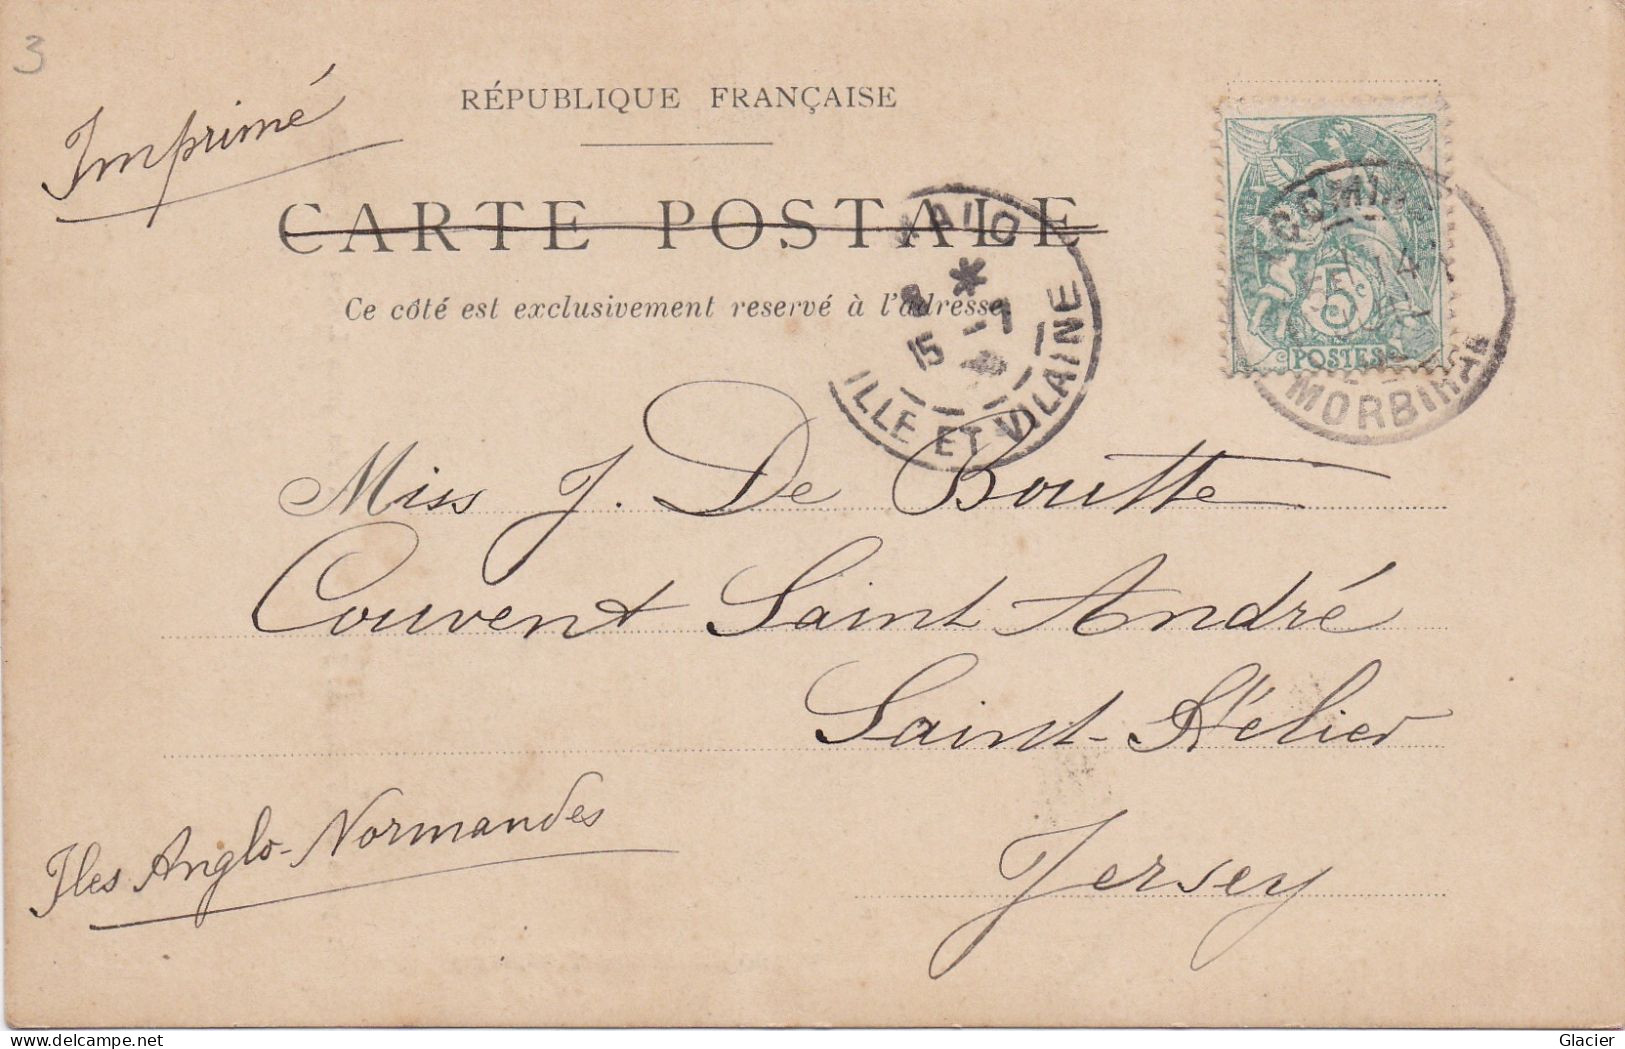 3
Imprimé
RÉPUBLIQUE FRANÇAISE
CARTE POSTALE
Ce côté est exclusivement reservé à l'adresse
15 -7
ILLE ET VILAINE
14
5c
POSTES
MORBIHAN
Miss J. De Boutte
Couvent Saint André
Saint-Hélier
Iles Anglo-Normandes
Jersey
Glacier